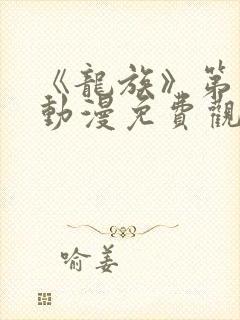 《龍族》第
動漫免費觀
喻姜